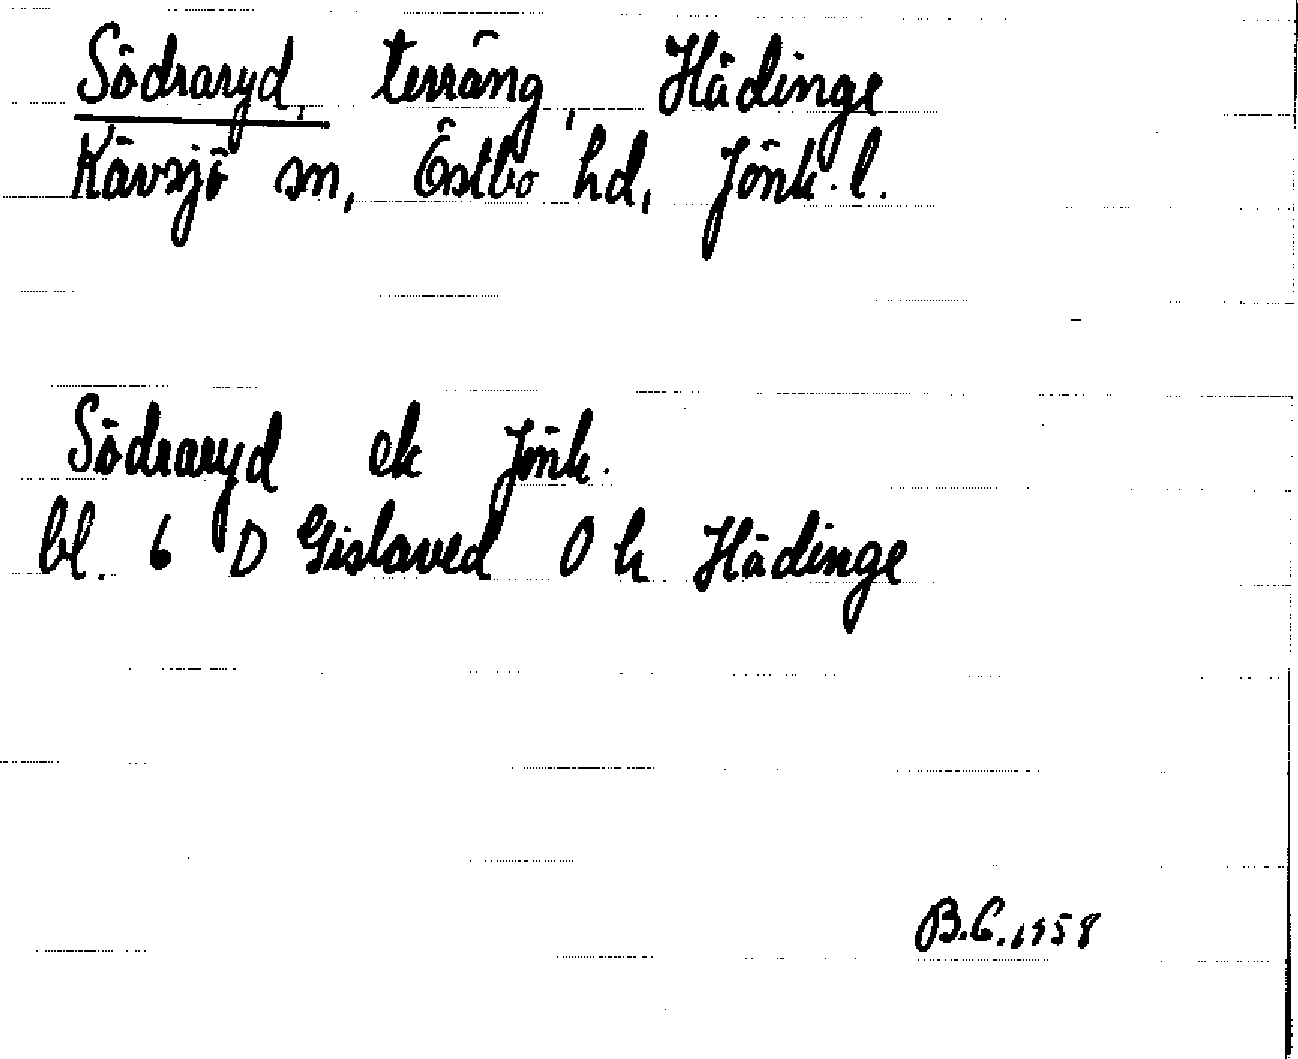 Södraryd, terräng, Hådinge
Kävsjö sn, Östbo hd, Jönk. l.
Södraryd ek Jönk.
bl. 6 D Gislaved O h Hådinge
B.C. 1958